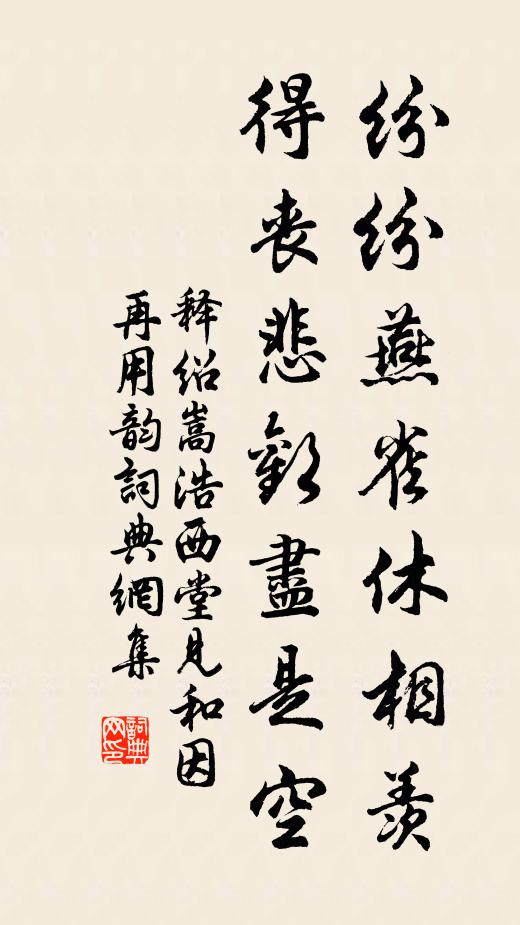 纷纷燕雀休相羡
得丧悲歡盡是空
释绍嵩浩西堂见和因
再用韵詞典網集
詞典网印